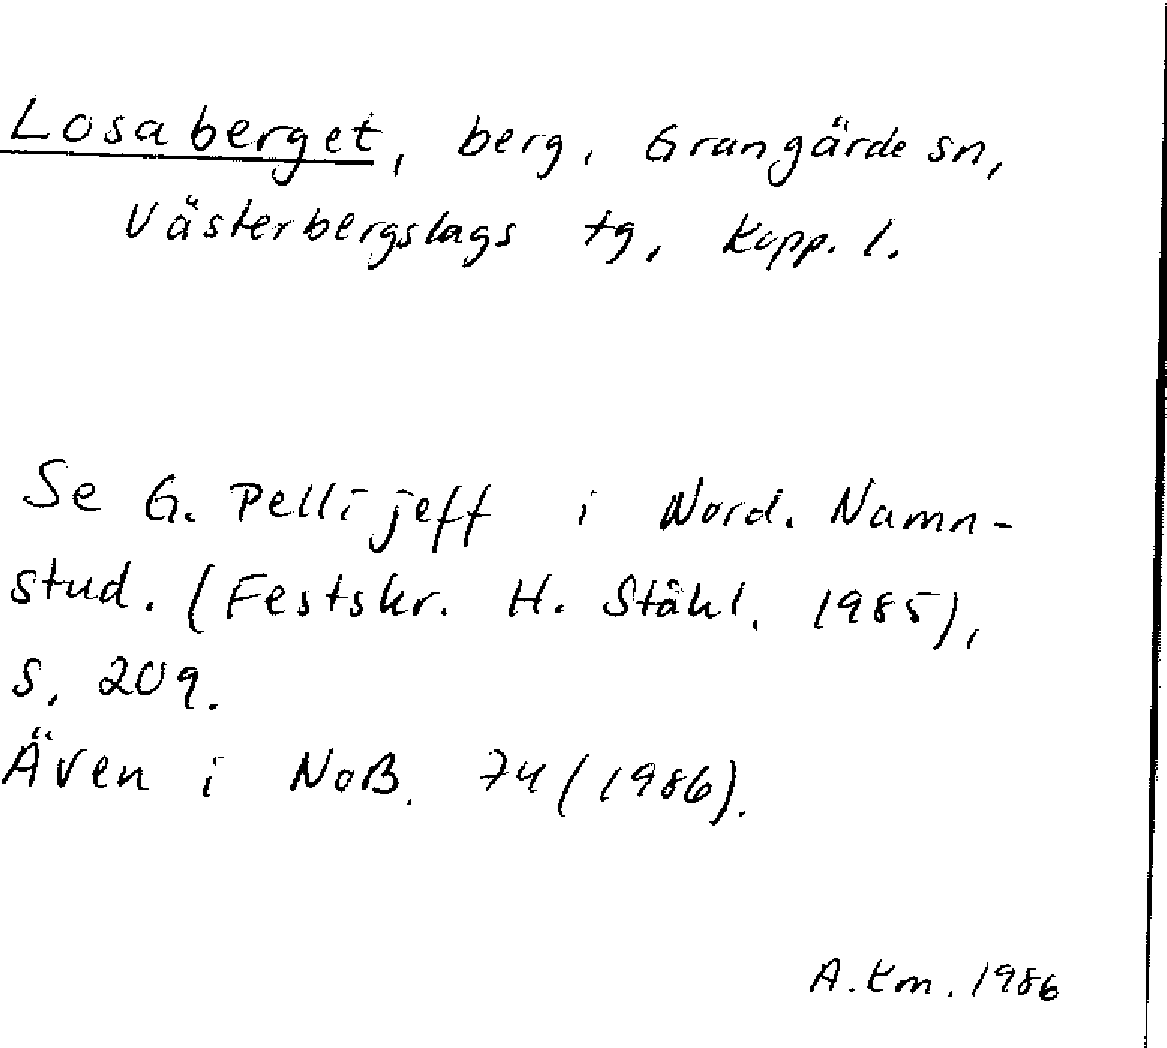 Losaberget, berg, Grangärde sn,
Västerbergslags tg, Kopp. l.
Se G. Pellijeff i Nord. Namn-
stud. (Festskr. H. Ståhl. 1985),
s. 209.
Även i NoB. 74 (1986).
A. Km. 1986